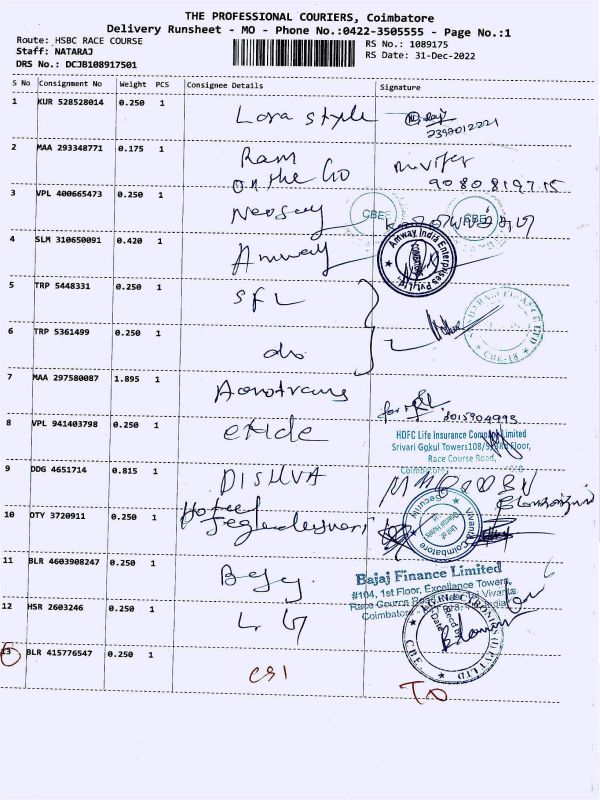 THE PROFESSIONAL COURIERS, Coimbatore
Delivery Runsheet - MO - Phone No.:0422-3505555 - Page No.:1
Route: HSBC RACE COURSE
RS No.: 1089175
Staff: NATARAJ
RS Date: 31-Dec-2022
DRS No.: DCJB108917501
S No Consignment No Weight PCS Consignee Details Signature
1 KUR 528528014 0.250 1 Lora style
2 MAA 293348771 0.175 1 Ram
on the Go
9080819715
3 VPL 400665473 0.250 1
CBE
CBE
4 SLM 310650091 0.420 1 Amway
Amway India Enterprises Pvt Ltd
5 TRP 5448331 0.250 1 SFL
6 TRP 5361499 0.250 1 do
FINANCE LTD
CBE-18
7 MAA 297580087 1.895 1
for
8 VPL 941403798 0.250 1
HDFC Life Insurance Company Limited
Srivari Gokul Towers 108/ Floor,
Race Course Road,
9 DDG 4651714 0.815 1 DISHVA
10 OTY 3720911 0.250 1 Hotel
Security
Vivanta Coimbatore
11 BLR 4603908247 0.250 1
Bajaj Finance Limited
#104, 1st Floor, Excellance Towers,
Race Course Vivanta
Coimbatore India
12 HSR 2603246 0.250 1 LG
Recd By
Date
CBE
13 BLR 415776547 0.250 1 CSI
TO